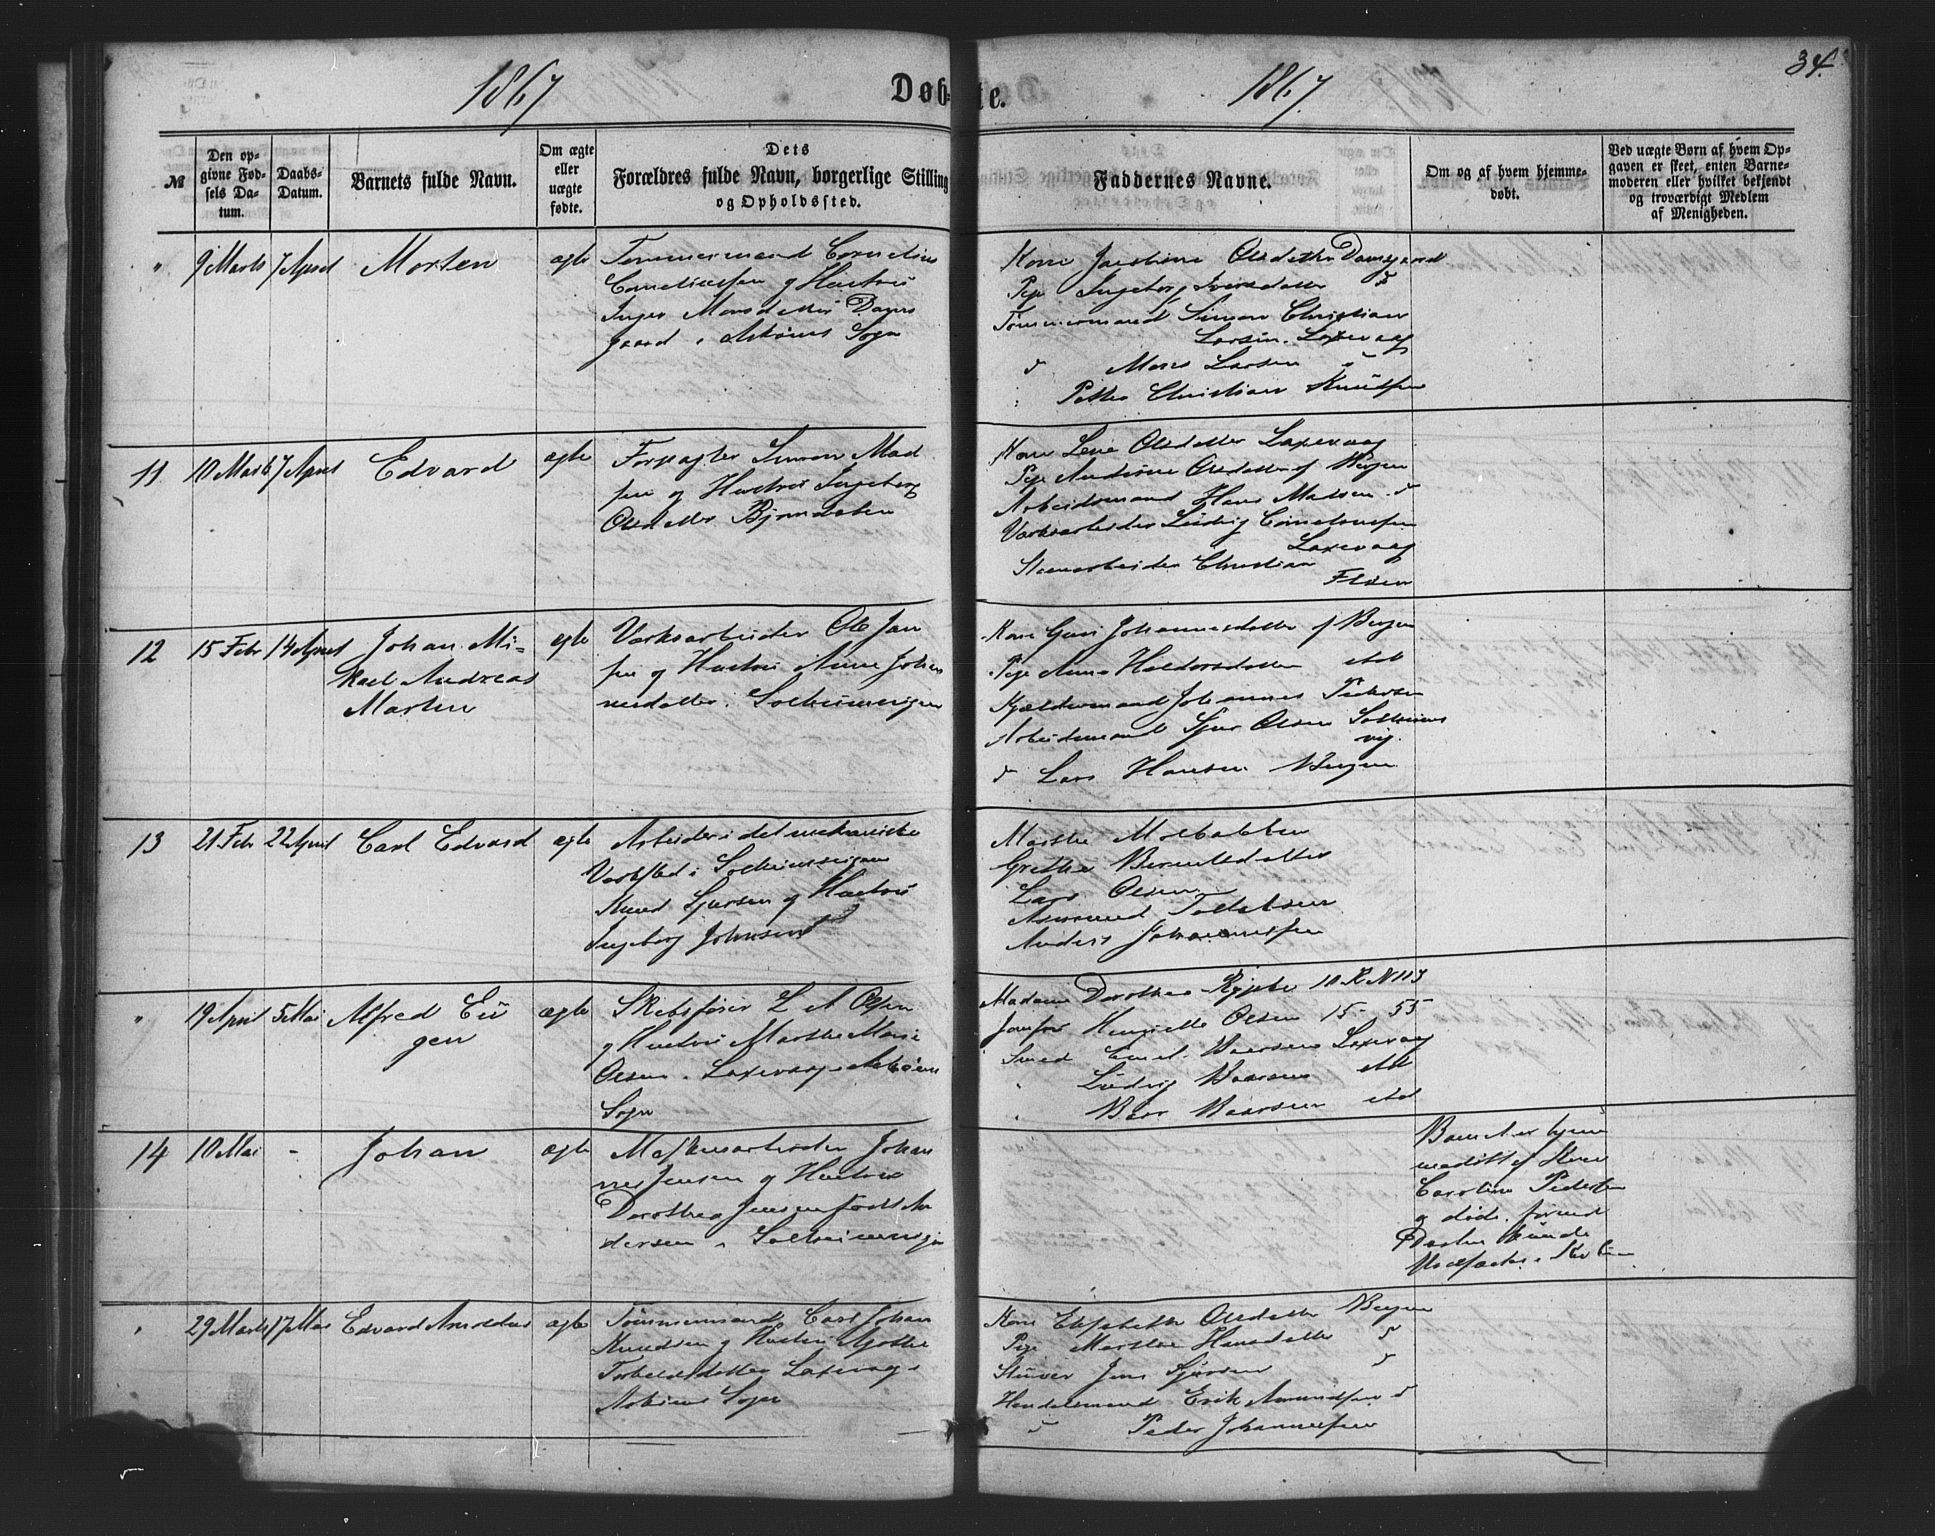 1867
Døb-te.
1867.
34.
№
Den op-
givne Fød-
sels Da-
tum.
Daabs-
Datum.
Barnets fulde Navn.
Om ægte
eller
uægte
fødte.
Dets
Forældres fulde Navn, borgerlige Stilling
og Opholdssted.
Faddernes Navne.
Om og af hvem hjemme-
døbt.
Ved uægte Børn af hvem Op-
gaven er skeet, enten Barne-
moderen eller hvilket bekjendt
og troværdigt Medlem
af Menigheden.
" 9 Marts 7 April Morten ægte
Tømmermand Cornelius
Corneliussen og Hustru
Inger Monsdatter Dams
gaard i Askøens Sogn
Kone Olsdatter Damsgaard
Pige Ingeborg Iversdatter
Tømmermand Simon Christian
Larsen Laxevaag
Mons Larsen
Petter Christian Knudsen
11 10 Marts 7 April Edvard ægte
Forpagter Simon Mad
sen og Hustru Ingeborg
Olsdatter Bjørndalen
Kone Lene Olsdatter Laxevaag
Pige Andrine Olsdatter af Bergen
Arbeidsmand Hans Madsen
Værksarbeider Ludvig Corneliussen
Laxevaag
Steenarbeider Christian
12 15 Febr 14 April Johan Mi-
kael Andreas
Martin
ægte
Værksarbeider Ole Jan
sen og Hustru Anne Johan
nesdatter Solheimsvigen
Kone Guri Johannesdatter af Bergen
Pige Anna Haldorsdatter
Kjældermand Johannes Pedersen
Arbeidsmand Sjur Olsen Solheims
vig.
Lars Hansen Bergen
13 21 Febr 22 April Carl Edvard ægte
Arbeider i det mekaniske
Værksted i Solheimsvigen
Knud Sjursen og Hustru
Ingeborg Johnsen
Marthe
Grethe Berntsdatter
Lars Olsen
Asmund Tollefsen
Anders Johannessen
" 19 April 5 Mai Alfred Eu
gen
ægte
Skibsfører L A Olsen
og Hustru Marthe Marie
Olsen Laxevaag i Askøens
Sogn
Madame Dorothea 10 R N 113
Jomfru Henriette Olsen 15 - 55
Smed Emil Baarsen Laxevaag
Ludvig Baarsen
Baar Baarsen
14 10 Mai - Johan ægte
Maskinarbeider Johan
nes Jensen og Hustru
Dorothea Jensen født An
dersen i Solheimsvigen
Barnet er hjem
medøbt af Kone
Caroline Pedersen
og døde førend
29 Marts 17 Mai Edvard ægte
Tømmermand Carl Johan
Knudsen og Hustru
Laxevaag i
Askøens Sogn
Kone Elisabeth Olsdatter Bergen
Pige Marthe Hansdatter
Stuver Jens Sjursen
Handelsmand Erik Amundsen
Peder Johannessen